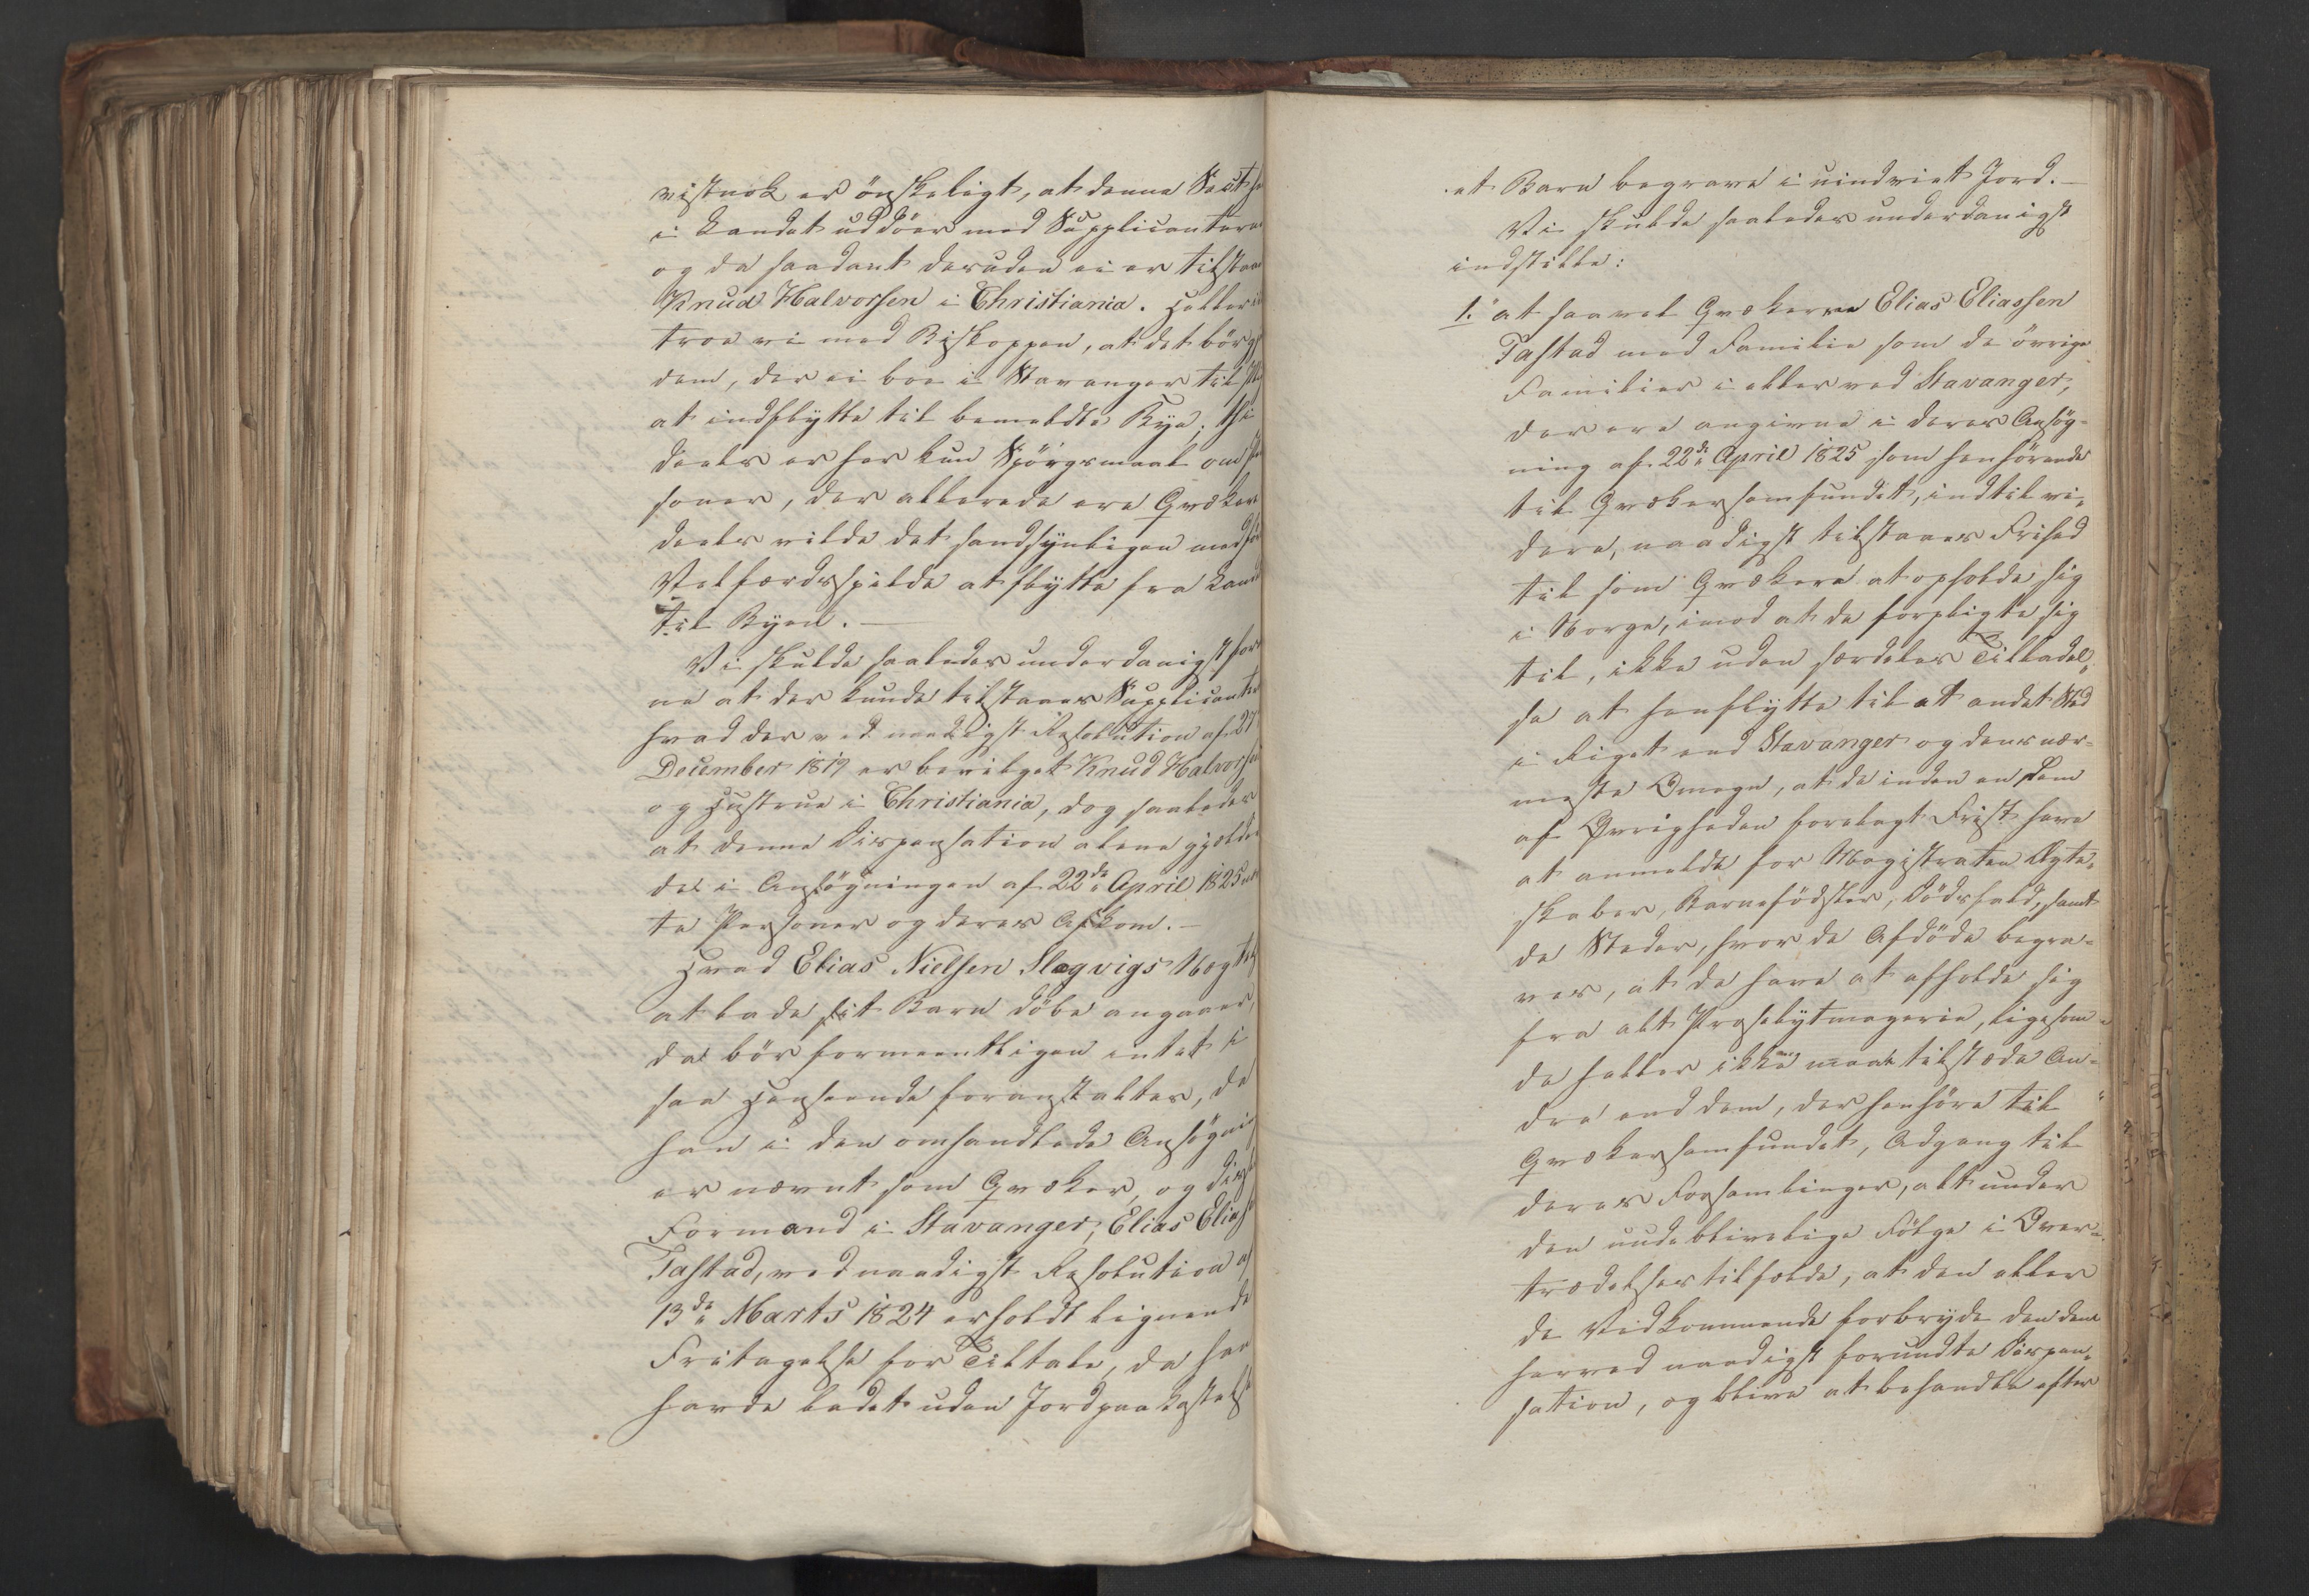 vistnok er önskeligt, at denne Sect
i Landet uddöer med Supplicanterne
og da saadant desuden ei er tilstaaet
Knud Halvorsen i Christiania. Heller ei
troe vi med Biskoppen, at det bör
dem, der ei boe i Stavanger
at indflytte til bemeldte Bye; thi
deels er her kun Spörgsmaal om
soner, der allerede ere Qvækere
deels vilde det sandsynligen medföre
Velfærdsspilde at flytte fra Landet
til Byen. —
Vi skulde saaledes underdanigst for
ne at der kunde tilstaaes Supplicanterne
hvad der ved naadigst Resolution af 27
December 1819 er bevilget Knud Halvorsen
og Hustrue i Christiania, dog saaledes
at denne Dispensation alene gjelder
de i Ansögningen af 22de April 1825
te Personer og deres Afkom. —
Hvad Elias Nielsen Slogvigs Vægring
at lade sit Barn döbe angaaer,
da bör formeentligen intet i
saa Henseende foranstaltes, da
han i den omhandlede Ansögning
er nævnt som Qvæker, og disses
Formand i Stavanger, Elias Eliassen
Tastad, ved naadigst Resolution af
13de Marts 1824 erholdt lignende
Fritagelse for Tiltale, da han
havde ladet uden Jordpaakastelse
et Barn begrave i uindviet Jord. —
Vi skulde saaledes underdanigst
indstille:
1. at saavel Qvækerne Elias Eliassen
Tastad med Familie som de övrige
Familier i eller ved Stavanger,
der ere angivne i deres Ansög-
ning af 22de April 1825 som henhörende
til Qvækersamfundet, indtil vi-
dere, naadigst tilstaaes Frihed
til som Qvækere at opholde sig
i Norge, imod at de forpligte sig
til, ikke uden særdeles Tilladel-
se at henflytte til et andet Sted
i Riget end Stavanger og dens nær-
meste Omegn, at de inden en dem
af Øvrigheden forelagt Frist have
at anmelde for Magistraten Ægte-
skaber, Barnefödsler, Dödsfald, samt
de Steder, hvor de Afdöde begra-
ves, at de have at afholde sig
fra alt Proselytmageri, ligesom
de heller ikke maae tilstæde An-
dre end dem, der henhöre til
Qvækersamfundet, Adgang til
deres Forsamlinger, alt under
den uudeblivelige Fölge i Over-
trædelsestilfælde, at den eller
de Vedkommende forbryde den dem
herved naadigst forundte Dispen-
sation, og blive at behandle efter